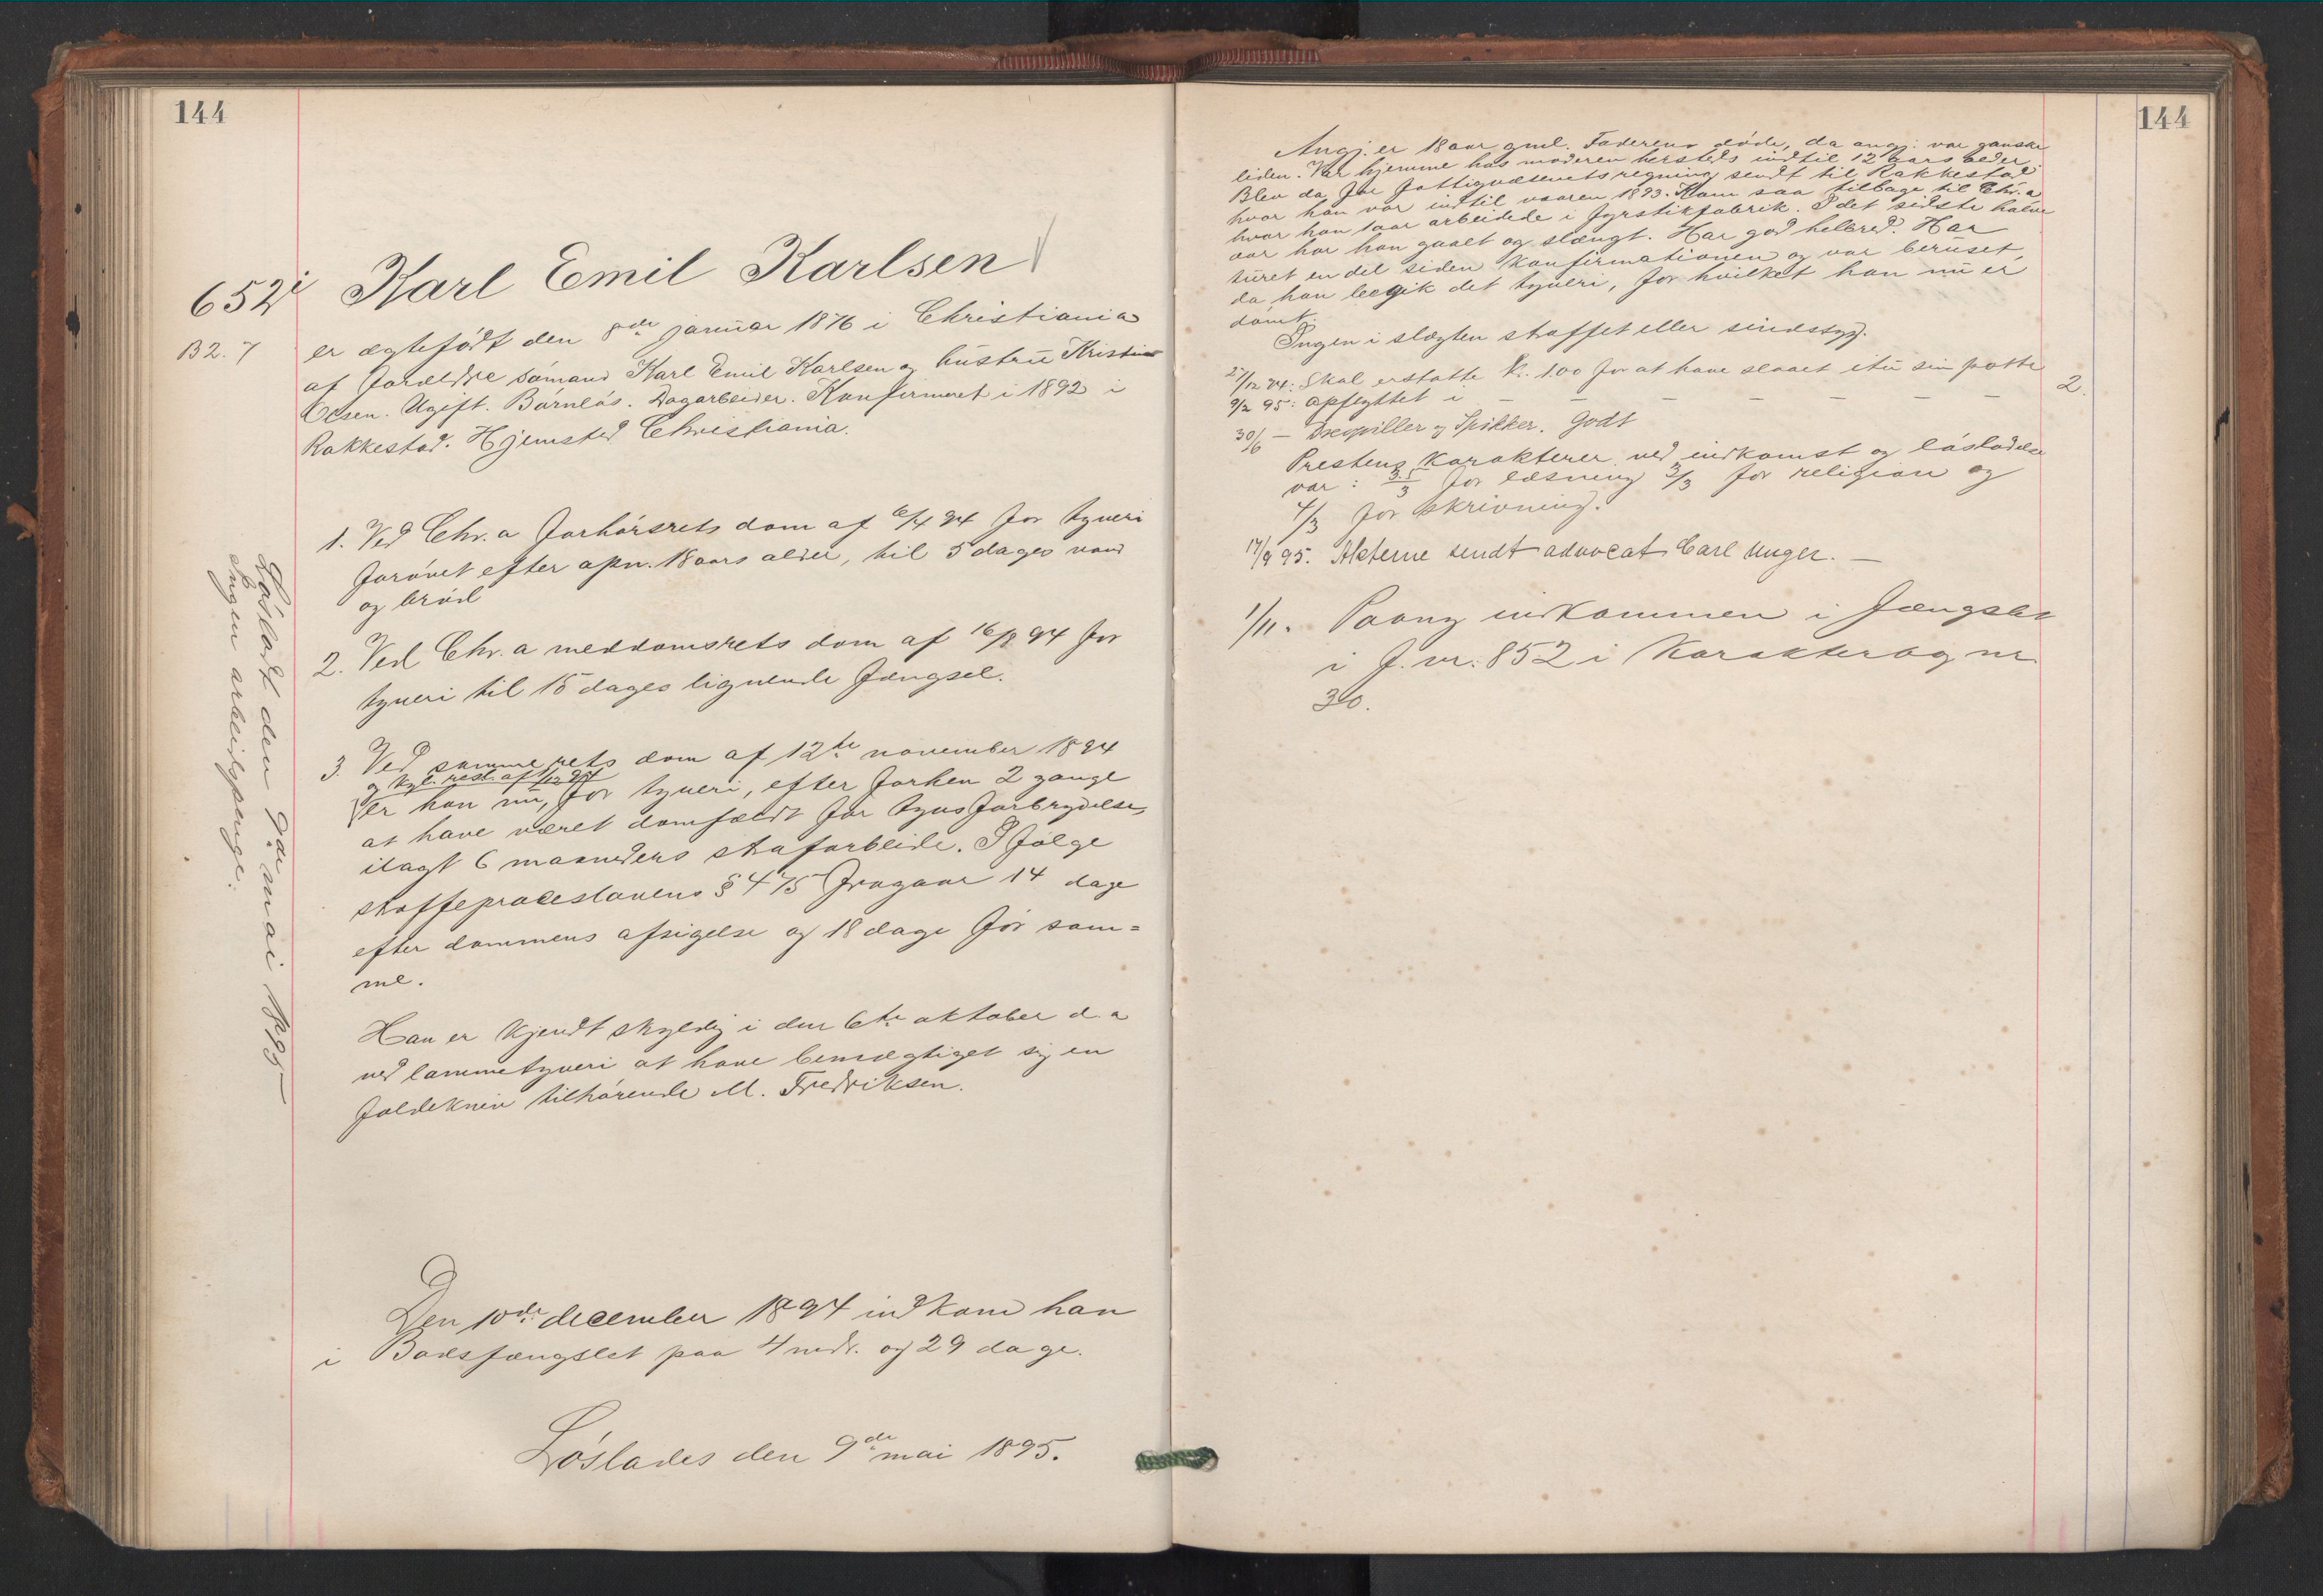 144
652 i Karl Emil Karlsen
B 2. 7
er ægtefødt den 8de januar 1876 i Christiania
af forældre sømand Karl Emil Karlsen og hustru Kristine
Olsen. Ugift. Barnløs. Dagarbeider. Konfirmeret i 1892 i
Rakkestad. Hjemsted Christiania.
1. Ved Chr.a forhørsrets dom af 6/4 94 for tyveri
forøvet efter opn. 18 aars alder, til 5 dages vand
og brød
2. Ved Chr.a meddomsrets dom af 16/8 94 for
tyveri til 15 dages lignende fængsel.
3. Ved samme rets dom af 12te november 1894
og kgl. resl. af 1/12 94
er han nu, for tyveri, efter forhen 2 gange
at have været domfældt for tyvsforbrydelse,
ilagt 6 maaneders strafarbeide. I følge
straffeproceslovens § 475 fragaar 14 dage
efter dommens afsigelse og 18 dage før sam=
me.
Han er kjendt skyldig i den 6te oktober d.a
ved lommetyveri at have bemægtiget sig en
foldekniv tilhørende M. Fredriksen.
Den 10de december 1894 indkom han
i Bodsfængslet paa 4 mdr. og 29 dage.
Løslades den 9de mai 1895.
Løsladt den 9de mai 1895
Ingen arbeidspenge.
144
Angj. er 18 aar gml. Faderen døde, da angj. var ganske
liden. Var hjemme hos moderen hersteds indtil 12 aars alder.
Blev da for fattigvæsenets regning sendt til Rakkestad
hvor han var indtil vaaren 1893. Kom saa tilbage til Chr.a
hvor han 1 aar arbeidede i fyrstikfabrik. I det sidste halve
aar har han gaaet og slængt. Har god helbred. Har
turet en del siden konfirmationen og var beruset,
da han begik det tyveri, for hvilket han nu er
dømt.
Ingen i slægten straffet eller sindssyg.
27/12 94: Skal erstatte k. 1.00 for at have slaaet itu sin potte
9/2 95: opflyttet i – – – – – – 2.
30/6 – Spikker. Godt
Prestens karakterer ved indkomst og løsladelse
var: 3.5/3 for læsning 3/3 for religion og
4/3 for skrivning.
17/9 95. Akterne sendt advocat Carl Unger. —
1/11. Paany indkommen i fængslet
i f. nr. 852 i Karakterbog nr.
30.